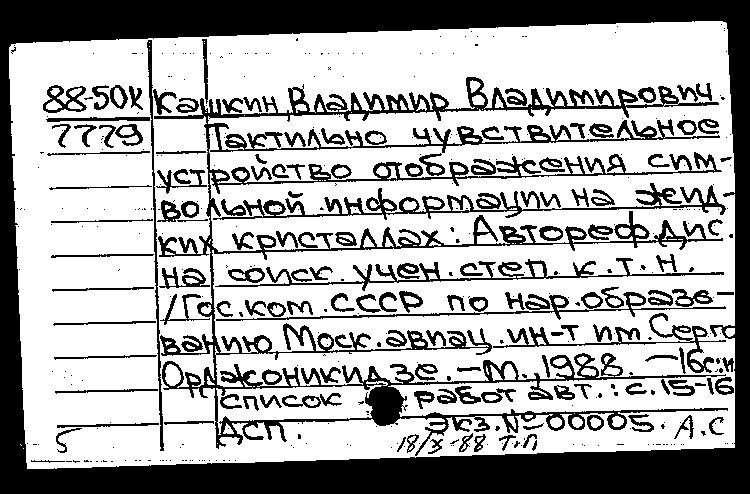 88-50к Кашкин, Владимир Владимирович.
7779 Тактильно чувствительное
устройство отображения сим-
вольной информации на жид-
ких кристаллах: Автореф. дис.
на соиск. учен. степ. к.т.н.
/Гос. ком. СССР по нар. образо-
ванию, Моск. авиац. ин-т им. Серго
Орджоникидзе. – М., 1988. – 16с.:
список работ авт.: с.15-16
ДСП. Экз. № 00005. А.С
5 18/X-88 Т.П